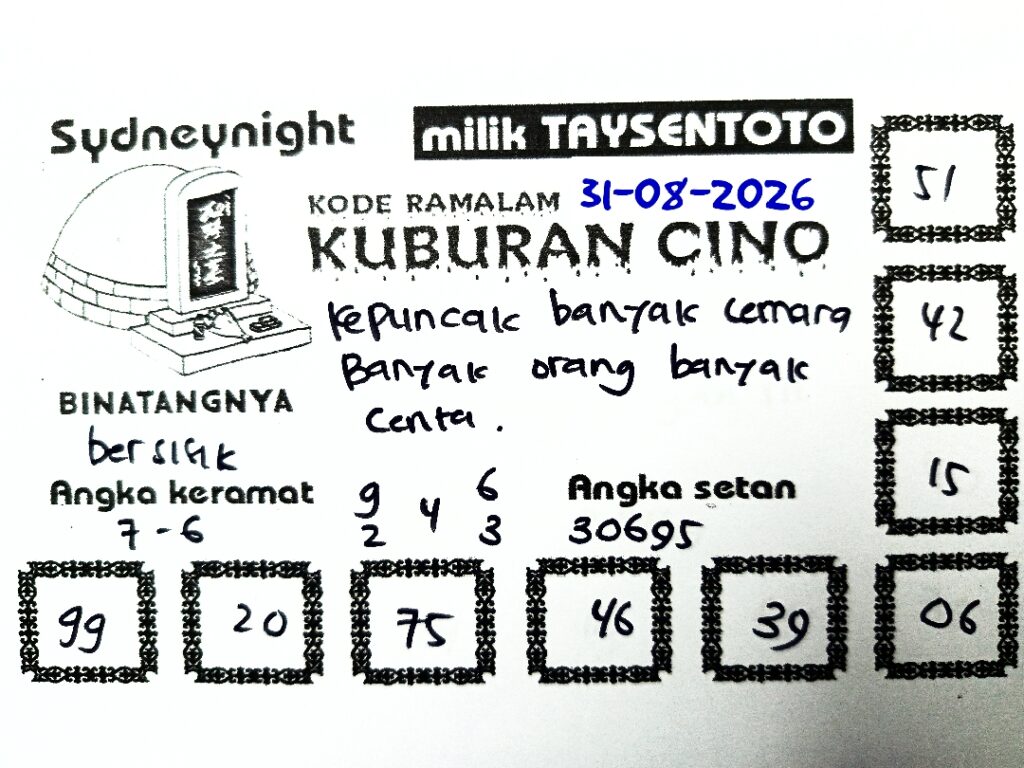 Sydneynight
milik TAYSENTOTO
KODE RAMALAM 31-08-2026
KUBURAN CINO
Kepuncak banyak cemara
Banyak orang banyak
centa.
BINATANGNYA
bersisik
Angka keramat
7-6
9 6
4
2 3
Angka setan
30695
51
42
15
99 20 75 46 39 06